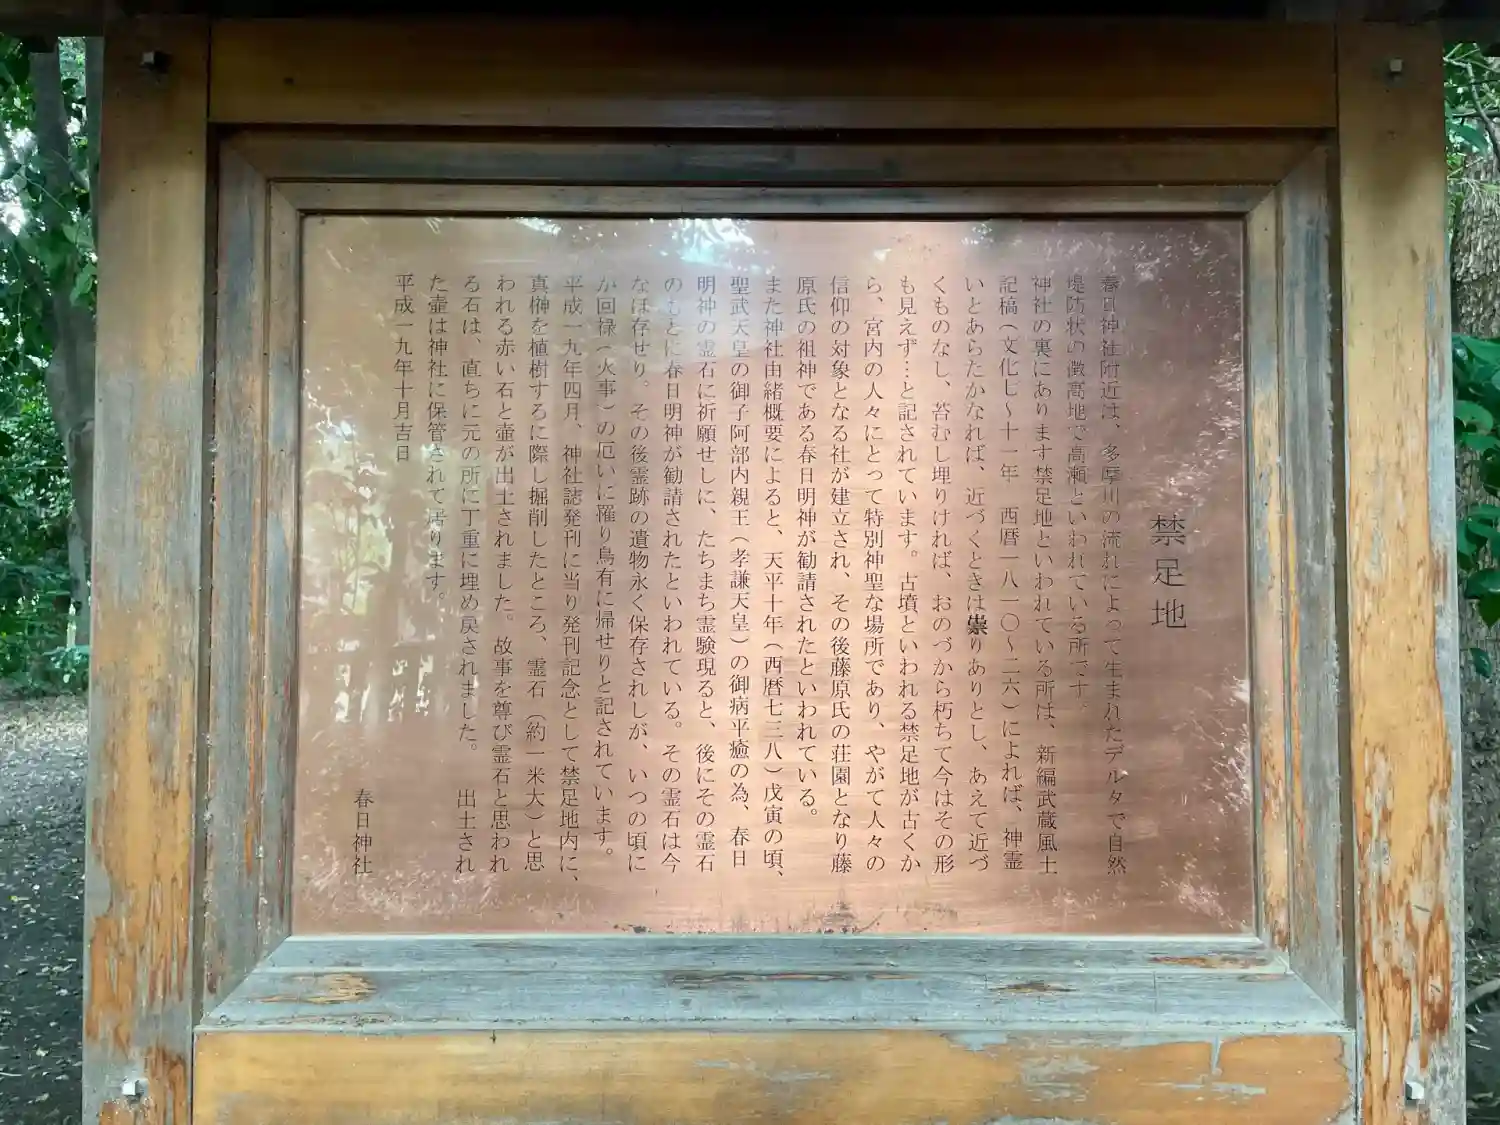 禁足地
春日神社附近は、多摩川の流れによって生まれたデルタで自然
堤防状の微高地で高瀬といわれている所です。
神社の裏にあります禁足地といわれている所は、新編武蔵風土
記稿(文化七～十一年　西暦一八一〇～二六)によれば、神霊
いとあらたかなれば、近づくときは祟りありとし、あえて近づ
くものなし、苔むし埋りければ、おのづから朽ちて今はその形
も見えず…と記されています。古墳といわれる禁足地が古くか
ら、宮内の人々にとって特別神聖な場所であり、やがて人々の
信仰の対象となる社が建立され、その後藤原氏の荘園となり藤
原氏の祖神である春日明神が勧請されたといわれている。
また神社由緒概要によると、天平十年(西暦七三八)戊寅の頃、
聖武天皇の御子阿部内親王(孝謙天皇)の御病平癒の為、春日
明神の霊石に祈願せしに、たちまち霊験現ると、後にその霊石
のもとに春日明神が勧請されたといわれている。その霊石は今
なほ存せり。その後霊跡の遺物永く保存されしが、いつの頃に
か回禄(火事)の厄いに罹り烏有に帰せりと記されています。
平成一九年四月、神社誌発刊に当り発刊記念として禁足地内に、
真榊を植樹するに際し掘削したところ、霊石(約一米大)と思
われる赤い石と壷が出土されました。故事を尊び霊石と思われ
る石は、直ちに元の所に丁重に埋め戻されました。　出土され
た壷は神社に保管されて居ります。
平成一九年十月吉日
春日神社